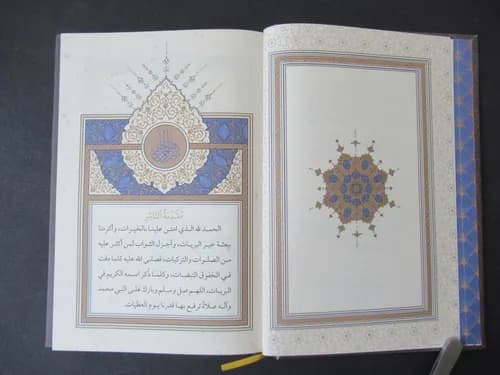 مقدمة الناشر
الحمد لله الذي امتن علينا بالخيرات، وأكرمنا
ببعثة خير البريات، وأجزل الثواب لمن أكثر عليه
من الصلوات والتزكيات، فصلى الله عليه كلما دقت
في الخفوق النبضات، وكلما ذكر اسمه الكريم في
البريات، اللهم صل وسلم وبارك على النبي محمد
وآله صلاة ترفع بها قدرنا يوم العطيات.